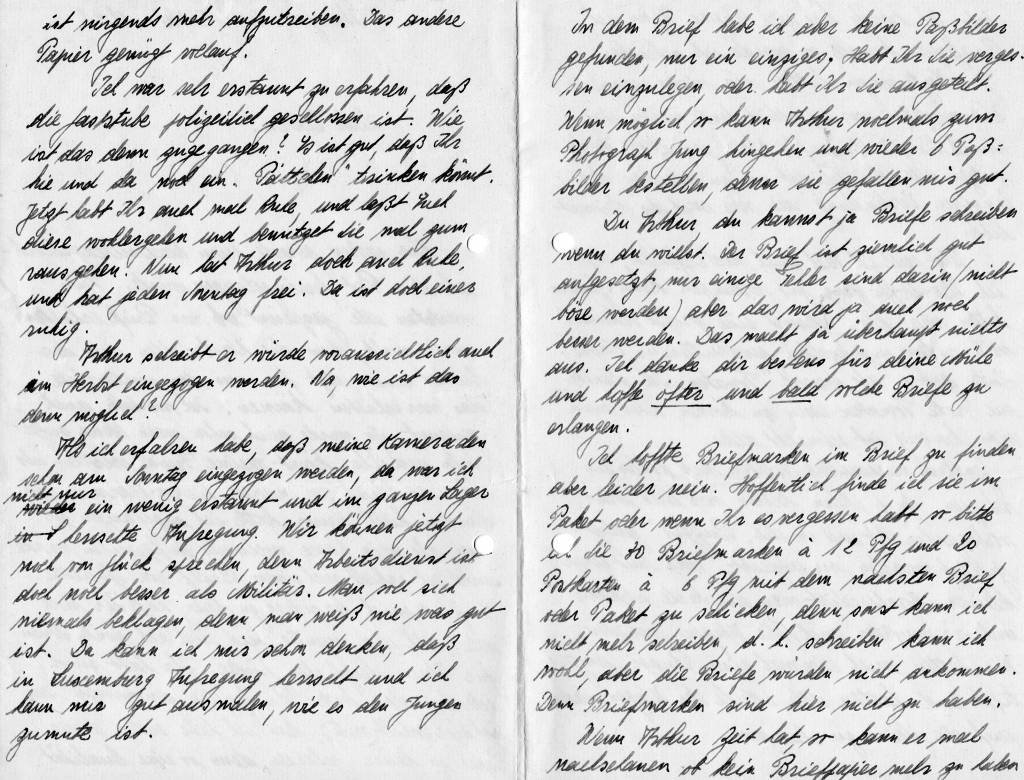 ist nirgends mehr aufzutreiben. Das andere
Papier genügt vollauf.
Ich war sehr erstaunt zu erfahren, daß
die Gaststube polizeilich geschlossen ist. Wie
ist das denn zugegangen? Es ist gut, daß Ihr
hie und da noch ein „Pättchen“ trinken könnt.
Jetzt habt Ihr auch mal Ruhe, und laßt Euch
diese wohlergehen und benützet Sie mal zum
rausgehen. Nun hat Arthur doch auch Ruhe,
und hat jeden Sonntag frei. Da ist doch einer
ruhig.
Arthur schreibt er würde voraussichtlich auch
im Herbst eingezogen werden. Na, wie ist das
denn möglich?
Als ich erfahren habe, daß meine Kameraden
schon am Sonntag eingezogen werden, da war ich
nicht nur
ein wenig erstaunt und im ganzen Lager
herrschte Aufregung. Wir können jetzt
noch von Glück sprechen, denn Arbeitsdienst ist
doch noch besser als Militär. Man soll sich
niemals beklagen, denn man weiß nie was gut
ist. Da kann ich mir schon denken, daß
in Luxemburg Aufregung herrscht und ich
kann mir gut ausmalen, wie es den Jungen
zumute ist.
In dem Brief habe ich aber keine Paßbilder
gefunden, nur ein einziges. Habt Ihr Sie verges-
sen einzulegen, oder habt Ihr Sie ausgeteilt.
Wenn möglich so kann Arthur nochmals zum
Photograph Jung hingehen und wieder 6 Paß=
bilder bestellen, denn sie gefallen mir gut.
Du Arthur du kannst ja Briefe schreiben
wenn du willst. Der Brief ist ziemlich gut
aufgesetzt, nur einige Fehler sind darin (nicht
böse werden) aber das wird ja auch noch
besser werden. Das macht ja überhaupt nichts
aus. Ich danke dir bestens für deine Mühe
und hoffe öfter und bald solche Briefe zu
erlangen.
Ich hoffte Briefmarken im Brief zu finden
aber leider nein. Hoffentlich finde ich sie im
Paket oder wenn Ihr es vergessen habt so bitte
ich Sie 30 Briefmarken à 12 Pfg und 20
Postkarten à 6 Pfg mit dem nächsten Brief
oder Paket zu schicken, denn sonst kann ich
nicht mehr schreiben, d. h. schreiben kann ich
wohl, aber die Briefe würden nicht ankommen.
Denn Briefmarken sind hier nicht zu haben.
Wenn Arthur Zeit hat, so kann er mal
nachschauen ob kein Briefpapier mehr zu haben